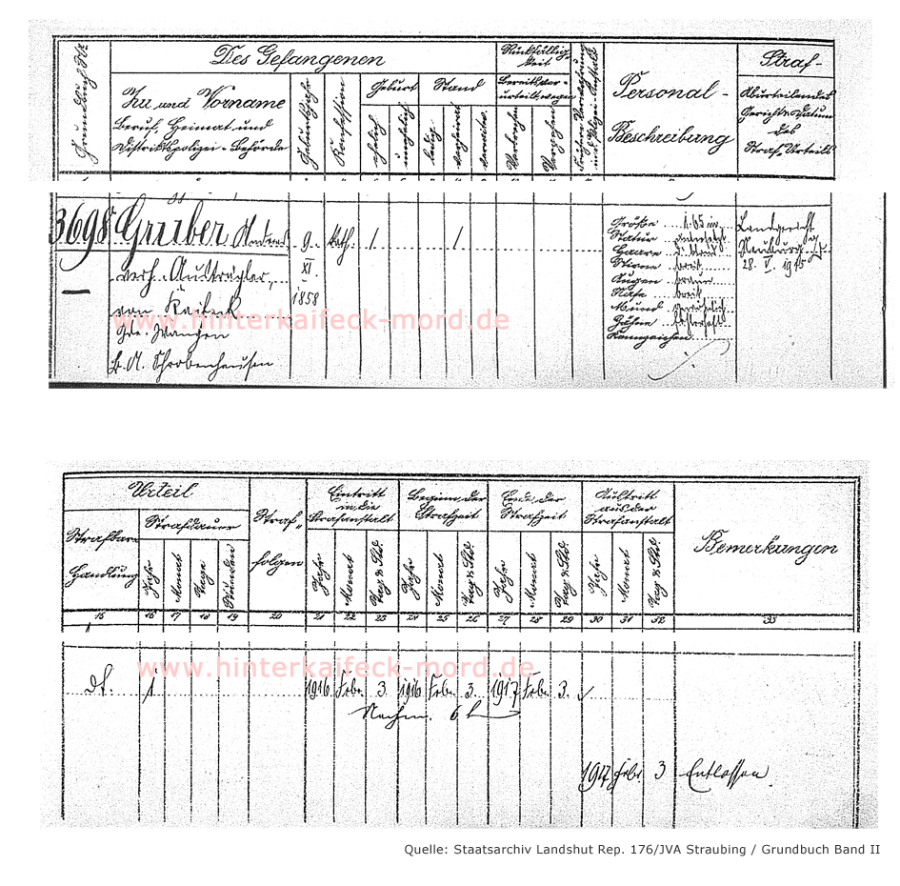 Grundbuch Nr.
Des Gefangenen
Zu und Vorname
Beruf, Heimat und
Distriktspolizei-Behörde
Geburtsjahr
Konfession
Geburt
ehelich
unehelich
Stand
ledig
verheirat.
verwitw.
Rückfälligkeit
Bereits verurteilt wegen
Verbrechen
Vergehen
Personal-
Beschreibung
Straf-
Aburteilendes
Gericht u. Datum
des
Straf-Urteils
3698 Gruber Andreas
verh. Austrägler,
von Kaifeck
Gde. Wangen
B.A. Schrobenhausen
9.
XI.
1858
kath.
/
/
Größe 1.65 m
Statur untersetzt
Haare d. blond
Stirne breit
Augen braun
Nase breit
Mund gewöhnlich
Zähne lückenhaft
Kennzeichen
Landgericht
Neuburg a/D.
28. V. 1915
www.hinterkaifeck-mord.de
Urteil
Strafbare
Handlung
Strafdauer
Jahr
Monat
Tage
Stunden
Straf-
folgen
Eintritt
in die
Strafanstalt
Jahr
Monat
Tag u. Std.
Beginn der
Strafzeit
Jahr
Monat
Tag u. Std.
Ende der
Strafzeit
Jahr
Monat
Tag u. Std.
Austritt
aus der
Strafanstalt
Jahr
Monat
Tag u. Std.
Bemerkungen
15 16 17 18 19 20 21 22 23 24 25 26 27 28 29 30 31 32 33
www.hinterkaifeck-mord.de
1 1916 Febr. 3. 1916 Febr. 3. 1917 Febr. 3.
Nachm. 6 h
1917 Febr. 3 Entlassen.
Quelle: Staatsarchiv Landshut Rep. 176/JVA Straubing / Grundbuch Band II